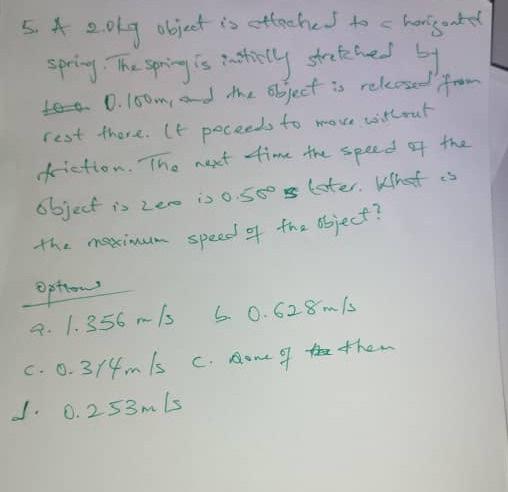 5. A 2.0kg object is attached to a horizontal
spring. The spring is initially stretched by
0.100m, and the object is released from
rest there. It poceeds to move without
friction. The next time the speed of the
object is zero is 0.500 s later. What is
the maximum speed of the object?
Options
a. 1.356 m/s b. 0.628 m/s
c. 0.314 m/s c. None of the them
d. 0.253 m/s